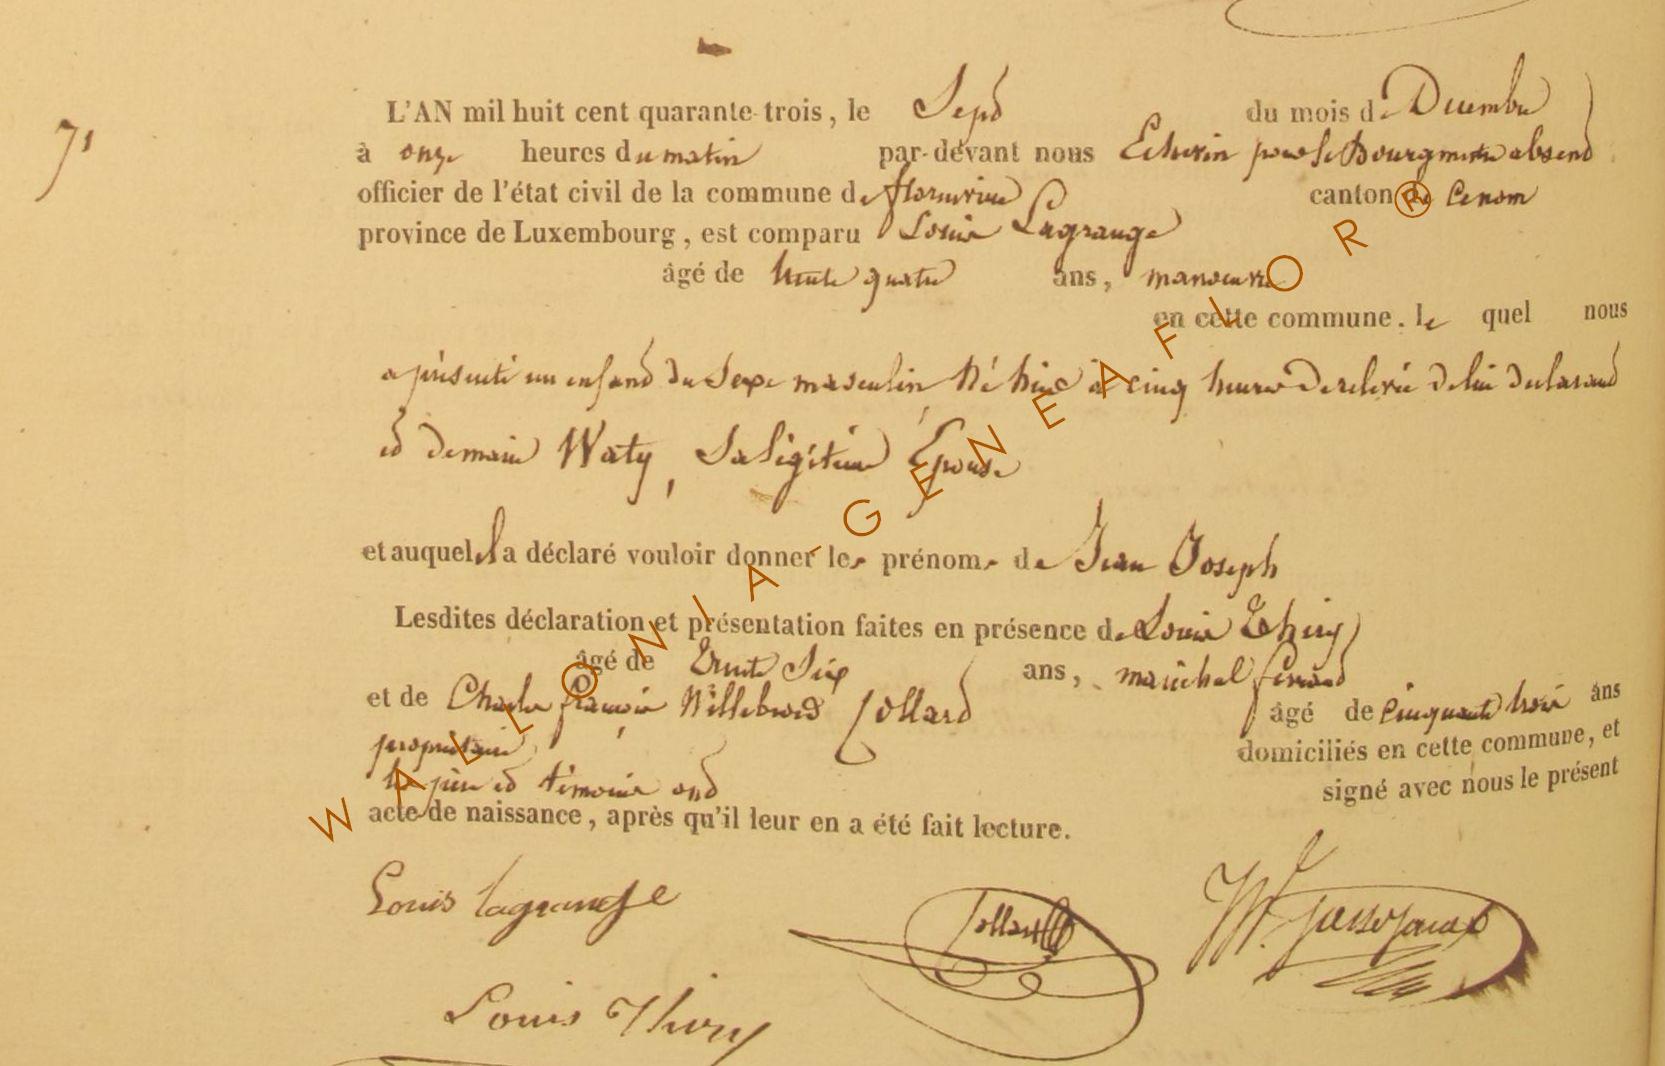 71
L'AN mil huit cent quarante-trois, le Sept du mois de Décembre
à onze heures du matin par-devant nous Echevin pour le Bourgmestre absend
officier de l'état civil de la commune de florenville canton de
province de Luxembourg, est comparu Louis Lagrange
âgé de trente quatre ans, manoeuvre
en cette commune. le quel nous
a présenté un enfand du Sexe masculin Né hier à cinq heures de relevée de lui declarand
et de marie Waty, Sa légitime Épouse
et auquel il a déclaré vouloir donner les prénoms de Jean Joseph
Lesdites déclaration et présentation faites en présence de Louis Thiry
âgé de Trente Six ans, maréchal ferrand
et de Charles françois Willebrord Collard âgé de cinquante trois ans
propriétaire domiciliés en cette commune, et
les père et témoins ond signé avec nous le présent
acte de naissance, après qu'il leur en a été fait lecture.
Louis lagrange
Collard
Louis Thiry
WALLONIA-GENEAFLOR®